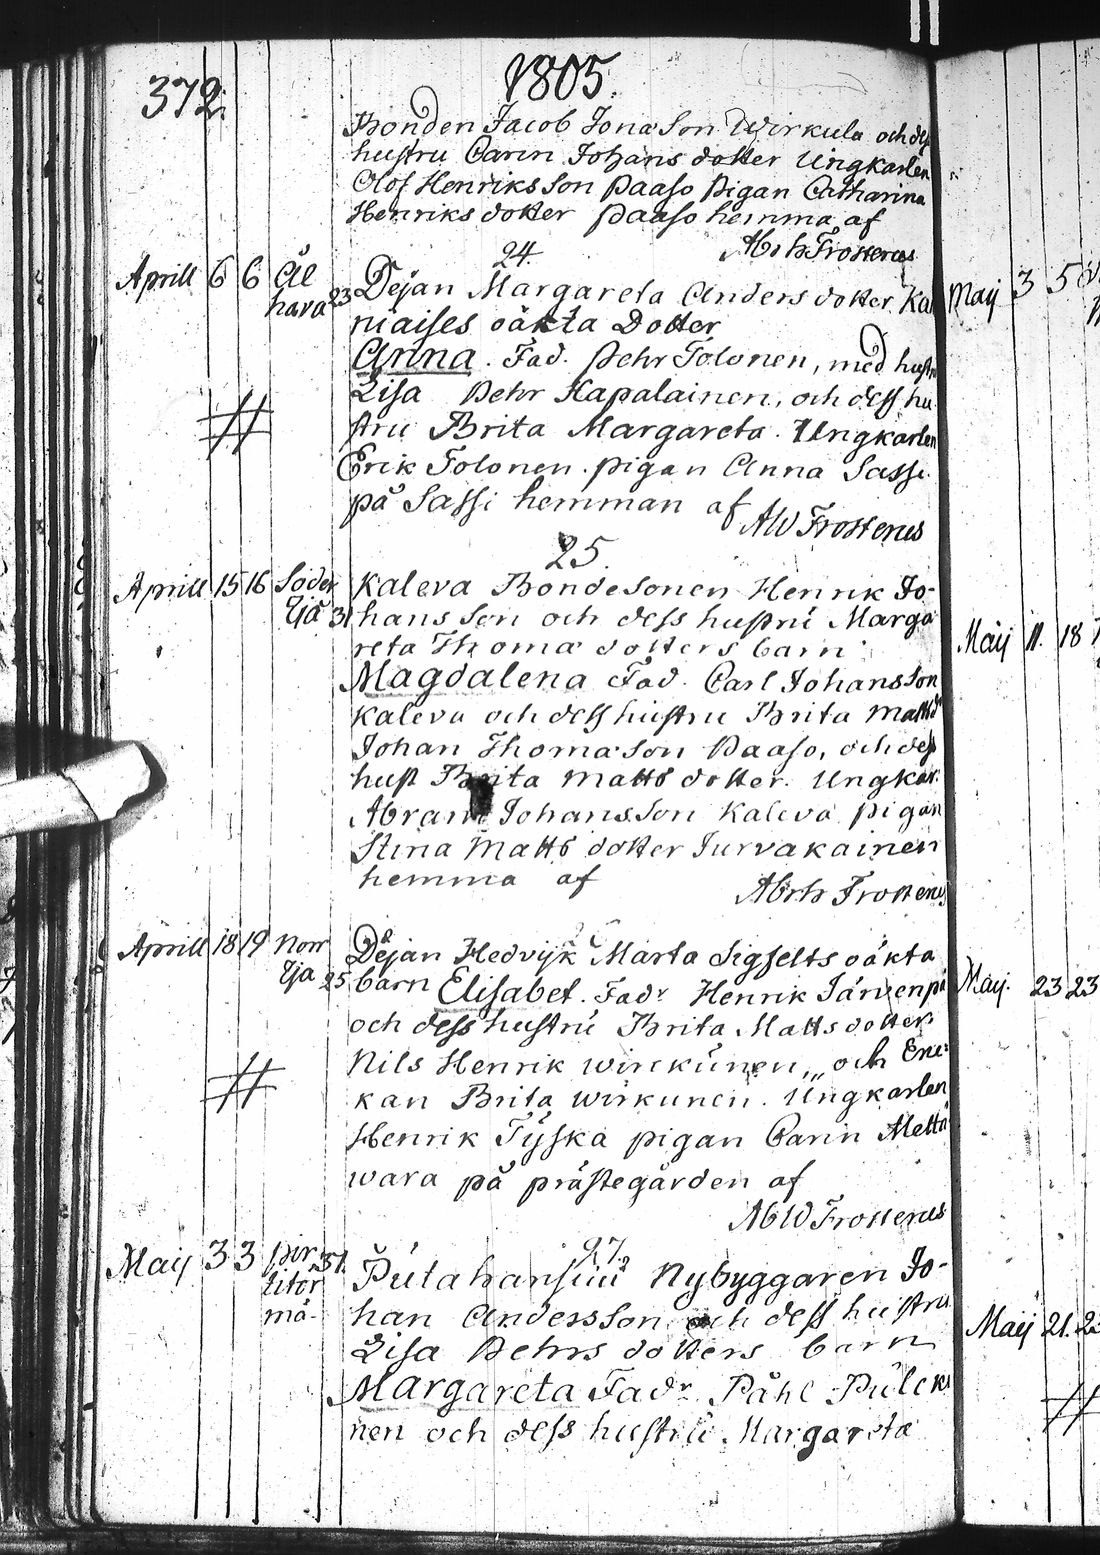 372.
1805.
Bonden Jacob Jonasson Wirkula och dess
hustru Carin Johans dotter Ungkarlen
Olof Henriksson Paaso Pigan Catharina
Henriks dotter Paaso hemma af
Abrh Frosterus
24.
Aprill 6 6 Ål
hava 23
Dejan Margareta Anders dotter Kai
niaises oäkta Dotter
Anna. Fad. Pehr Tolonen, med hustru
Lisa Pehr Kapalainen, och dess hu
stru Brita Margareta. Ungkarlen
Erik Tolonen. pigan Anna Sassi
på Sassi hemman af
AW Frosterus
25.
Aprill 15 16 Söder
Ijå 31
Kaleva Bondesonen Henrik Jo-
hansson och dess hustru Marga
reta Thomæ dotters barn
Magdalena Fad. Carl Johansson
Kaleva och dess hustru Brita Mattsd
Johan Thomasson Paaso, och dess
hust Brita Matts dotter. Ungkar.
Abram Johansson Kaleva pigan
Stina Matts dotter Jurvakainen
hemma af
Abrh Frosterus
Aprill 18 19 Norr
Ija 25
Dejan Hedvik Marta Sigfelts oäkta
barn Elisabet. Fadr Henrik Järvenpä
och dess hustru Brita Matts dotter
Nils Henrik Wirckunen,, och Enc-
kan Brita Wirkunen. Ungkarlen
Henrik Tyska pigan Carin Mettä
wara på prästegården af
AbW Frosterus
27.
Maij 3 3 Pir
titör
mä- 31.
Putahansuu Nybyggaren Jo-
han Andersson och dess hustru
Lisa Pehrs dotters barn
Margareta Fadr Påhl Pulck
nen och dess hustru Margareta
Maij 3 5
Maij 11. 18
Maij. 23 23
Maij 21.